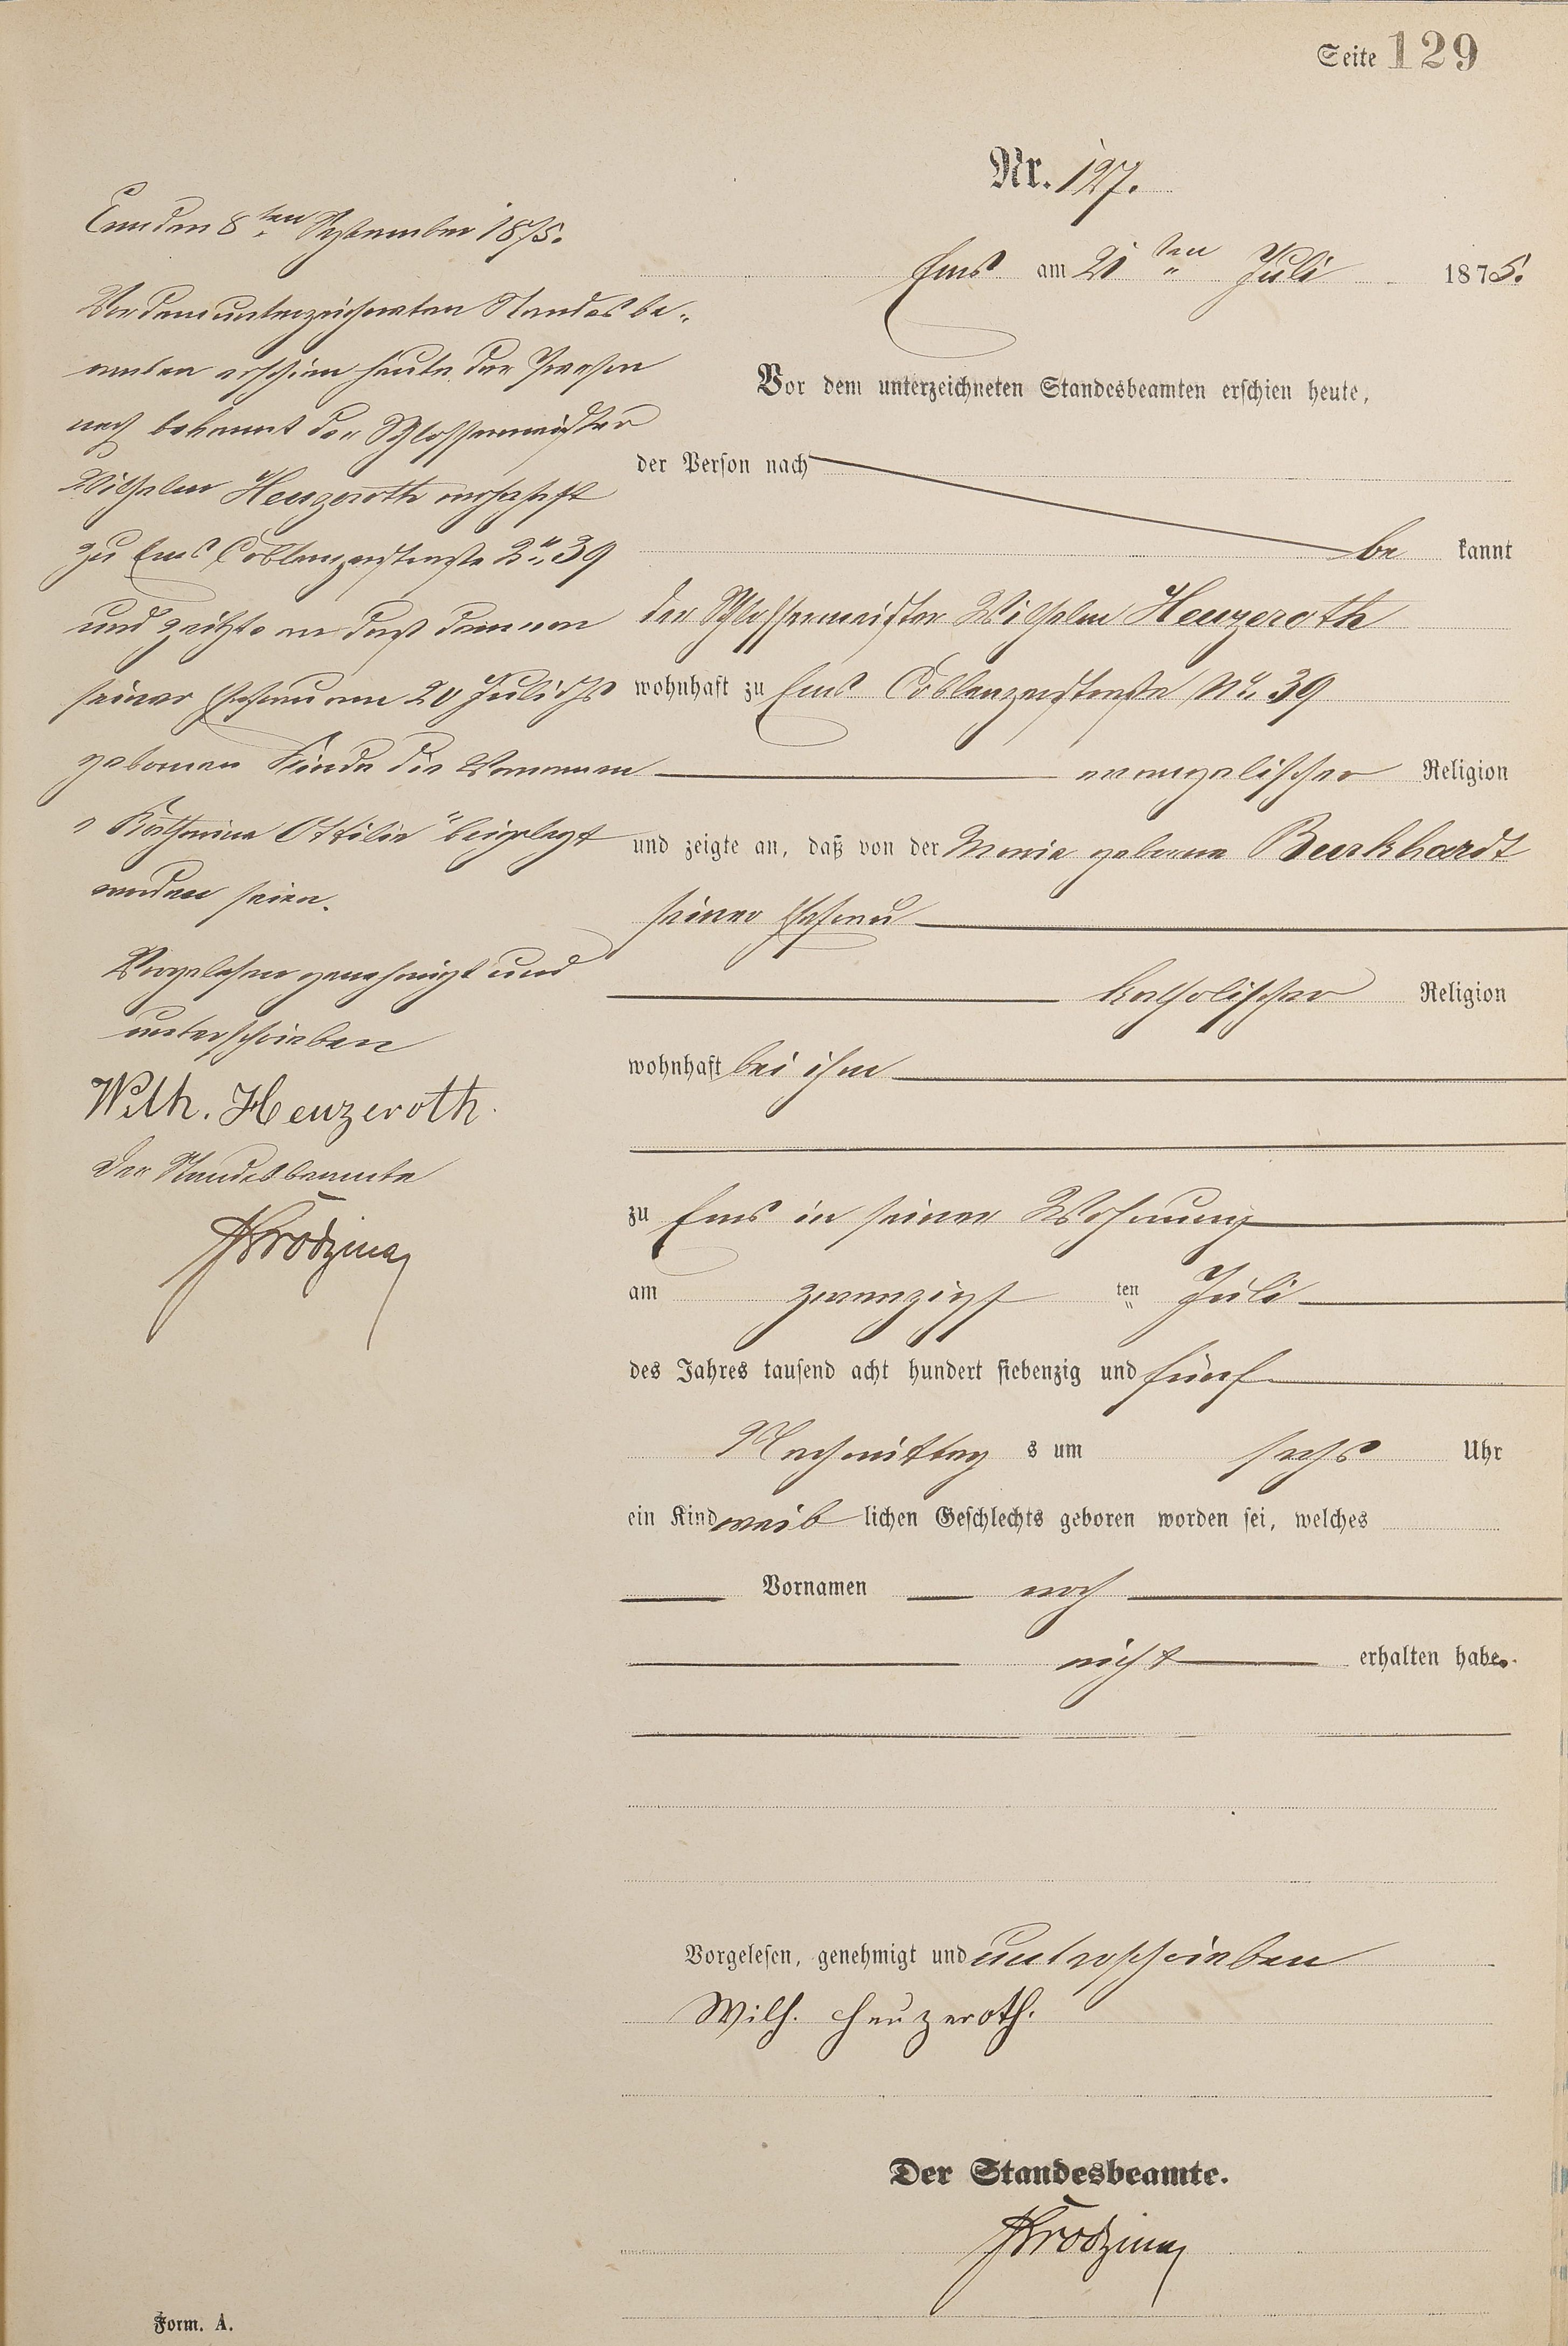 Seite 129
Nr. 127.
Ems am 21ten Juli 1875.
Vor dem unterzeichneten Standesbeamten erschien heute,
der Person nach
be kannt
der Schlossermeister Wilhelm Heuzeroth
wohnhaft zu Ems Coblenzerstraße No. 39
evangelischer Religion
und zeigte an, daß von der Maria geborene Burkhardt
seiner Ehefrau
katholischer Religion
wohnhaft bei ihm
zu Ems in seiner Wohnung
am zwanzigsten Juli
des Jahres tausend acht hundert siebenzig und fünf
Nachmittags um sechs Uhr
ein Kind weiblichen Geschlechts geboren worden sei, welches
Vornamen noch
nicht erhalten habe.
Vorgelesen, genehmigt und unterschrieben
Wilh. Heuzeroth.
Der Standesbeamte.
Ems den 8ten September 1875.
Vor dem unterzeichneten Standesbe-
amten erschien heute der Person
nach bekannt der Schlossermeister
Wilhelm Heuzeroth wohnhaft
zu Ems Coblenzerstraße 39
und zeigte an daß dem von
seiner Ehefrau am 20 Juli
geborenen Kinde die Vornamen
"Katharina Ottilie" beigelegt
worden seien.
Vorgelesen genehmigt und
unterschrieben
Wilh. Heuzeroth.
Der Standesbeamte
Form. A.